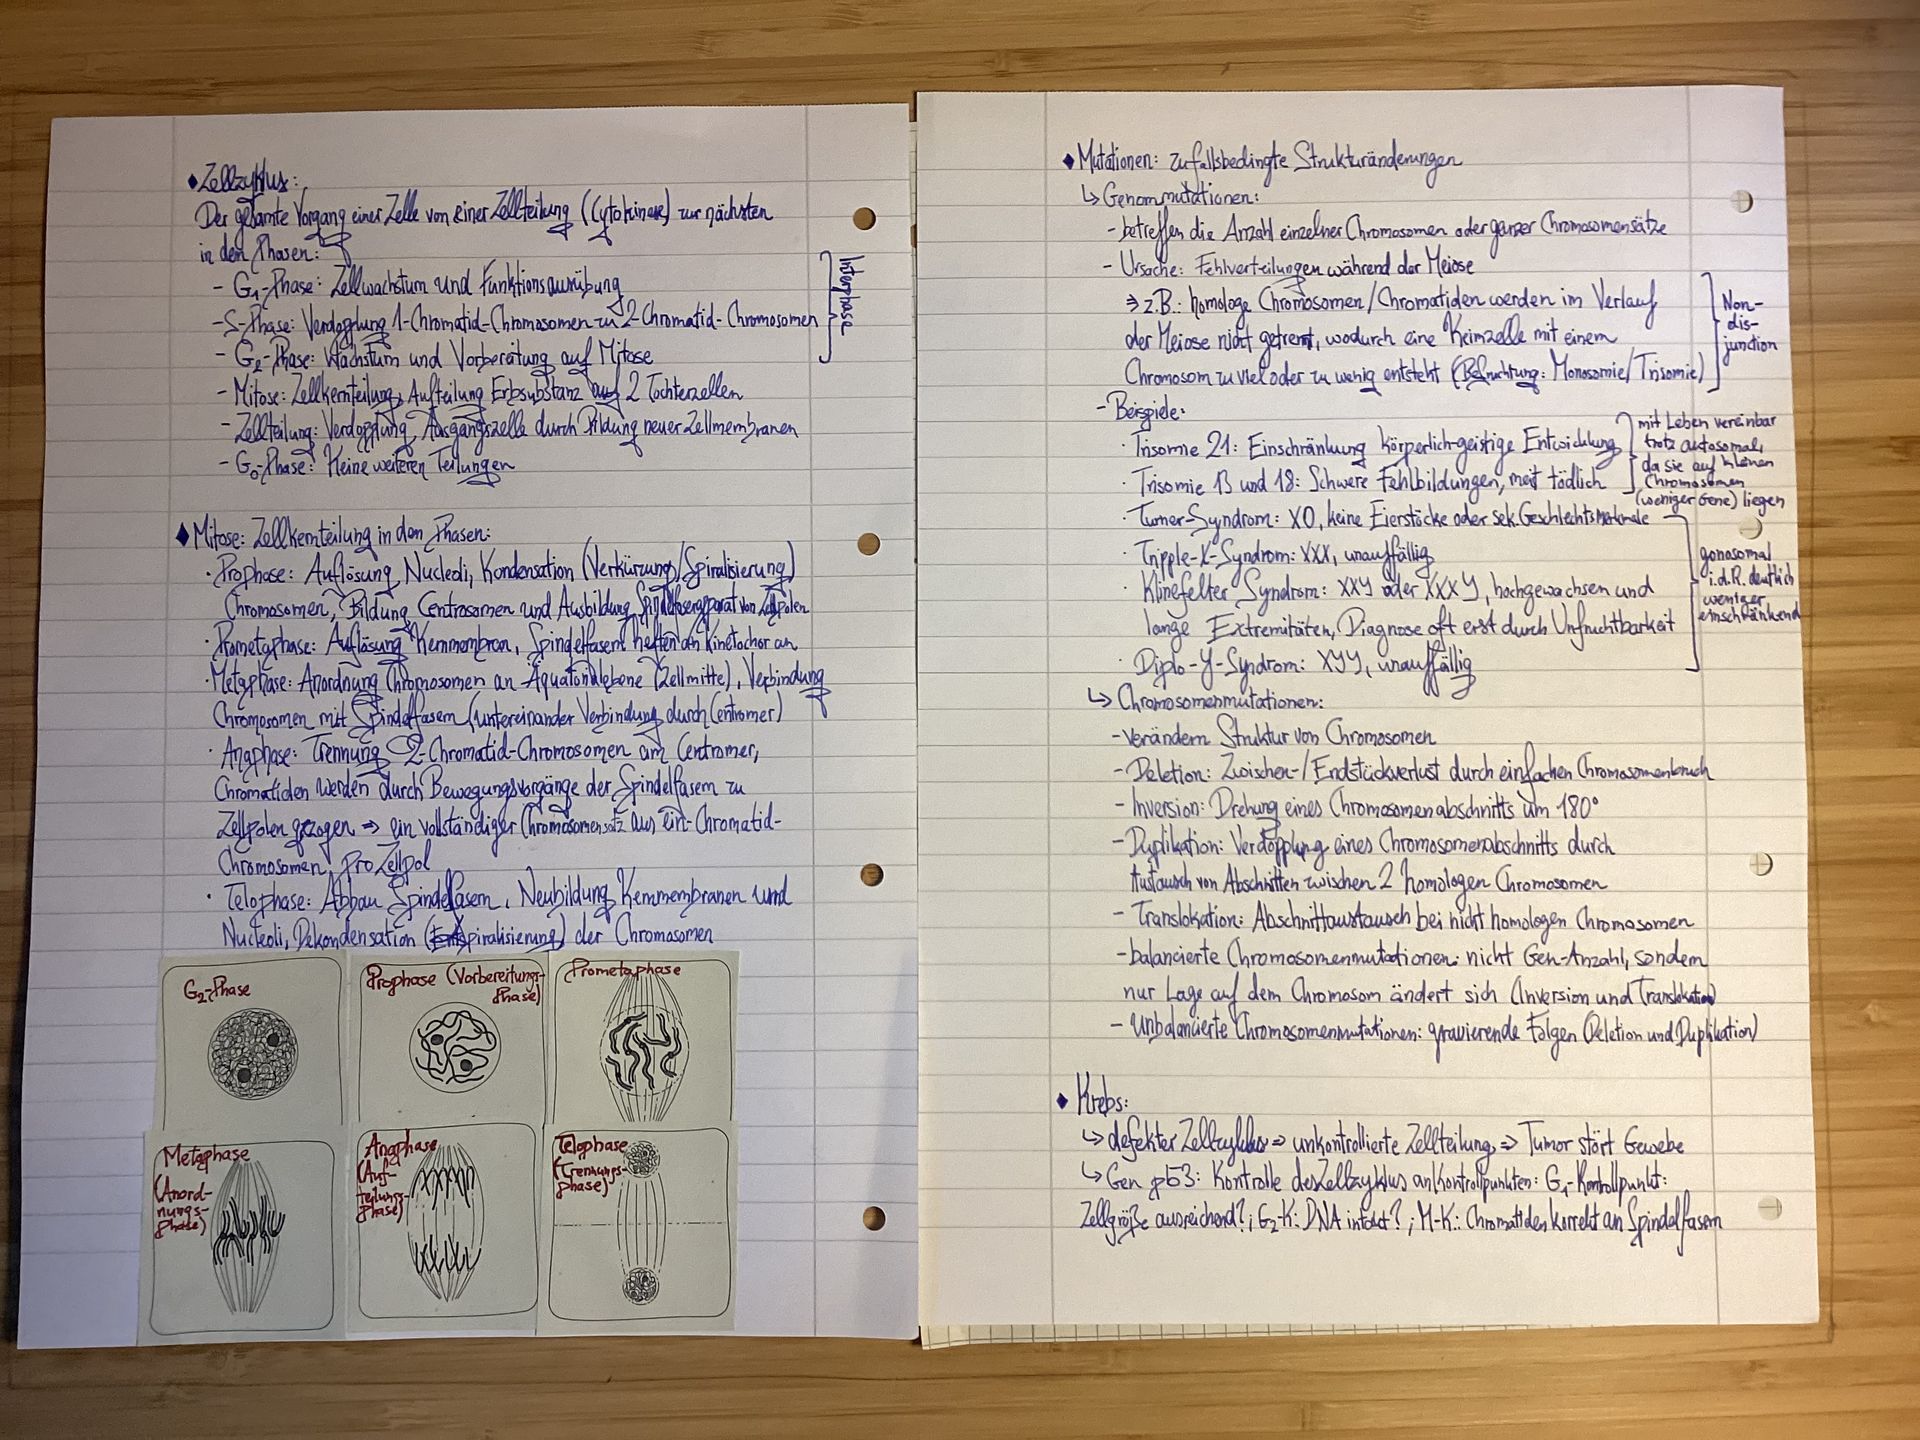 ♦Zellzyklus:
Der gesamte Vorgang einer Zelle von einer Zellteilung (Cytokinese) zur nächsten
in den Phasen:
- G₁-Phase: Zellwachstum und Funktionsausübung
- S-Phase: Verdopplung 1-Chromatid-Chromosomen zu 2-Chromatid-Chromosomen
- G₂-Phase: Wachstum und Vorbereitung auf Mitose
Interphase
- Mitose: Zellkernteilung, Aufteilung Erbsubstanz auf 2 Tochterzellen
- Zellteilung: Verdopplung Ausgangszelle durch Bildung neuer Zellmembranen
- G₀-Phase: Keine weiteren Teilungen
♦Mitose: Zellkernteilung in den Phasen:
· Prophase: Auflösung Nucleoli, Kondensation (Verkürzung/Spiralisierung)
Chromosomen, Bildung Centrosomen und Ausbildung Spindelfaserapparat von Zellpolen
· Prometaphase: Auflösung Kernmembran, Spindelfasern heften an Kinetochor an
· Metaphase: Anordnung Chromosomen an Äquatorialebene (Zellmitte), Verbindung
Chromosomen mit Spindelfasern (untereinander Verbindung durch Centromer)
· Anaphase: Trennung 2-Chromatid-Chromosomen am Centromer,
Chromatiden werden durch Bewegungsvorgänge der Spindelfasern zu
Zellpolen gezogen ⇒ ein vollständiger Chromosomensatz aus Ein-Chromatid-
Chromosomen pro Zellpol
· Telophase: Abbau Spindelfasern, Neubildung Kernmembranen und
Nucleoli, Dekondensation (Entspiralisierung) der Chromosomen
G₂-Phase
Prophase (Vorbereitungs-
phase)
Prometaphase
Metaphase
(Anord-
nungs-
phase)
Anaphase
(Auf-
teilungs-
phase)
Telophase
(Trennungs-
phase)
♦Mutationen: zufallsbedingte Strukturänderungen
↳ Genommutationen:
- betreffen die Anzahl einzelner Chromosomen oder ganzer Chromosomensätze
- Ursache: Fehlverteilungen während der Meiose
⇒ z.B.: homologe Chromosomen/Chromatiden werden im Verlauf
der Meiose nicht getrennt, wodurch eine Keimzelle mit einem
Chromosom zu viel oder zu wenig entsteht (Befruchtung: Monosomie/Trisomie)
Non-
dis-
junction
- Beispiele:
· Trisomie 21: Einschränkung körperlich-geistige Entwicklung
· Trisomie 13 und 18: Schwere Fehlbildungen, meist tödlich
mit Leben vereinbar
trotz autosomal,
da sie auf kleinen
Chromosomen
(weniger Gene) liegen
· Turner-Syndrom: X0, keine Eierstöcke oder sek. Geschlechtsmerkmale
· Tripple-X-Syndrom: XXX, unauffällig
· Klinefelter Syndrom: XXY oder XXXY, hochgewachsen und
lange Extremitäten, Diagnose oft erst durch Unfruchtbarkeit
· Diplo-Y-Syndrom: XYY, unauffällig
gonosomal
i.d.R. deutlich
weniger
einschränkend
↳ Chromosomenmutationen:
- Verändern Struktur von Chromosomen
- Deletion: Zwischen-/Endstückverlust durch einfachen Chromosomenbruch
- Inversion: Drehung eines Chromosomenabschnitts um 180°
- Duplikation: Verdopplung eines Chromosomenabschnitts durch
Austausch von Abschnitten zwischen 2 homologen Chromosomen
- Translokation: Abschnittaustausch bei nicht homologen Chromosomen
- balancierte Chromosomenmutationen: nicht Gen-Anzahl, sondern
nur Lage auf dem Chromosom ändert sich (Inversion und Translokation)
- Unbalancierte Chromosomenmutationen: gravierende Folgen (Deletion und Duplikation)
♦ Krebs:
↳ defekter Zellzyklus ⇒ unkontrollierte Zellteilung ⇒ Tumor stört Gewebe
↳ Gen p53: Kontrolle des Zellzyklus an Kontrollpunkten: G₁-Kontrollpunkt:
Zellgröße ausreichend?; G₂-K: DNA intakt?; M-K: Chromatiden korrekt an Spindelfasern